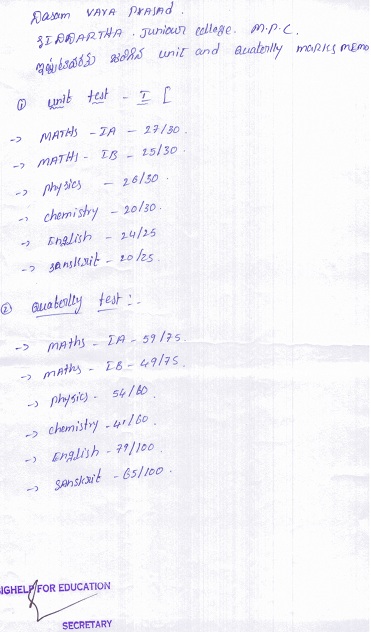 Dasam VAYA PRASAD.
SIDDARTHA. Juniour college. M.P.C.
unit and Quaterlly marks memo
① unit test - I [
-> MATHS - IA - 27/30.
-> MATHS - IB - 25/30.
-> physics - 26/30.
-> chemistry - 20/30.
-> English - 24/25
-> sanskrit - 20/25.
② Quaterlly test :-
-> maths - IA - 59/75.
-> maths - IB - 49/75.
-> physics - 54/60.
-> chemistry - 41/60.
-> English - 79/100.
-> sanskrit - 65/100.
IGHELP FOR EDUCATION
SECRETARY